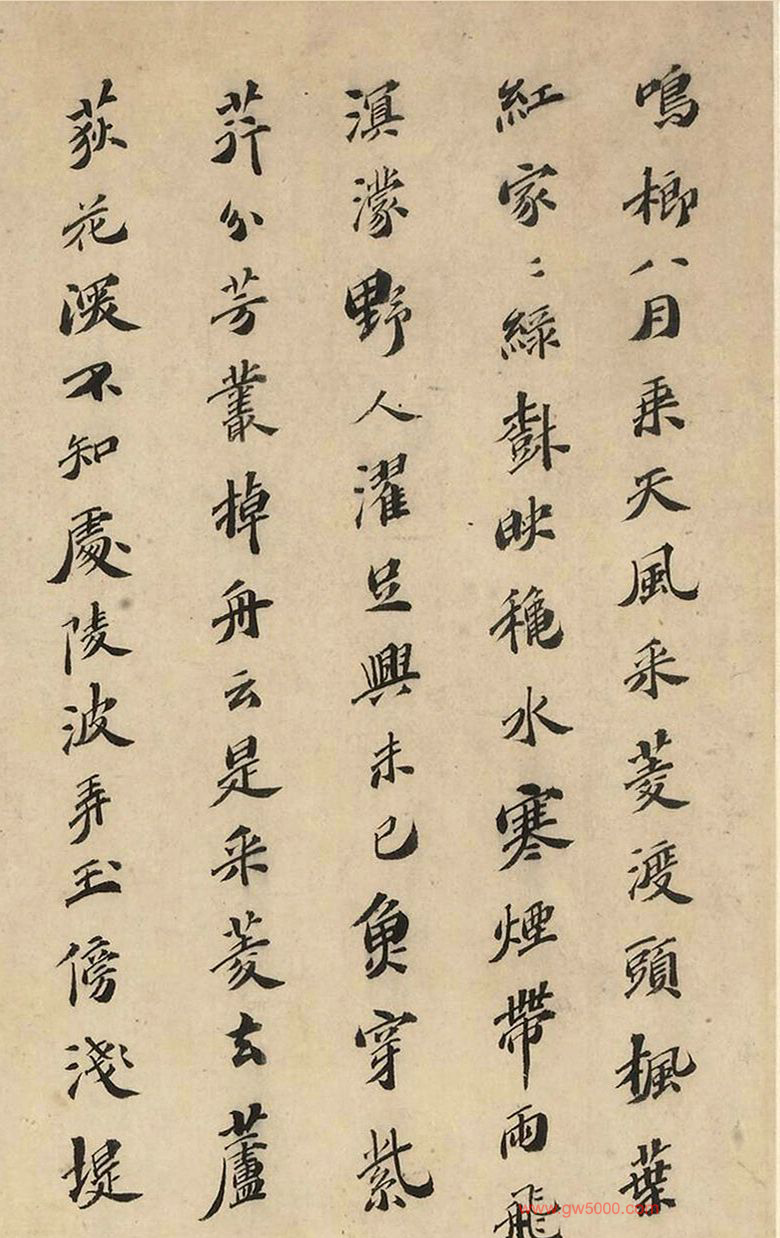 鳴榔八月乗天風采菱渡頭楓葉
紅家〻綠對映穐水寒煙帶雨飛
溟濛野人濯足興未已魚穿紫
荇分芳叢棹舟云是采菱去蘆
荻花深不知處陵波弄玉傍淺堤
www.gw5000.com